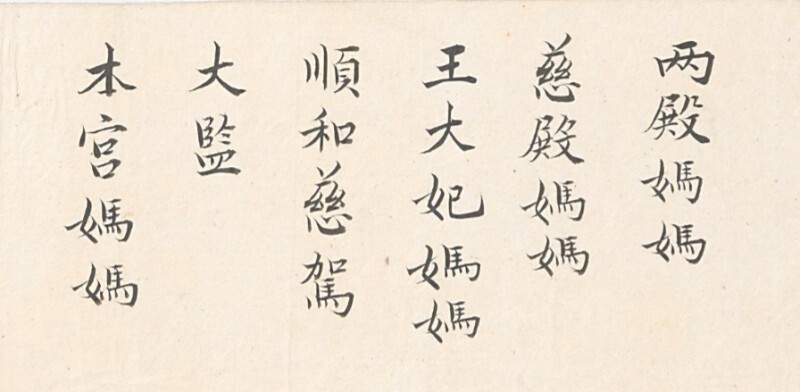 两殿媽媽
慈殿媽媽
王大妃媽媽
順和慈駕
大監
本宮媽媽